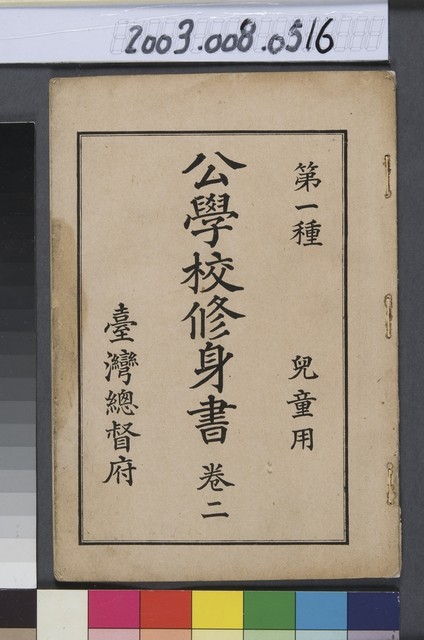 2003.008.0516
第一種 兒童用
公學校修身書 卷二
臺灣總督府